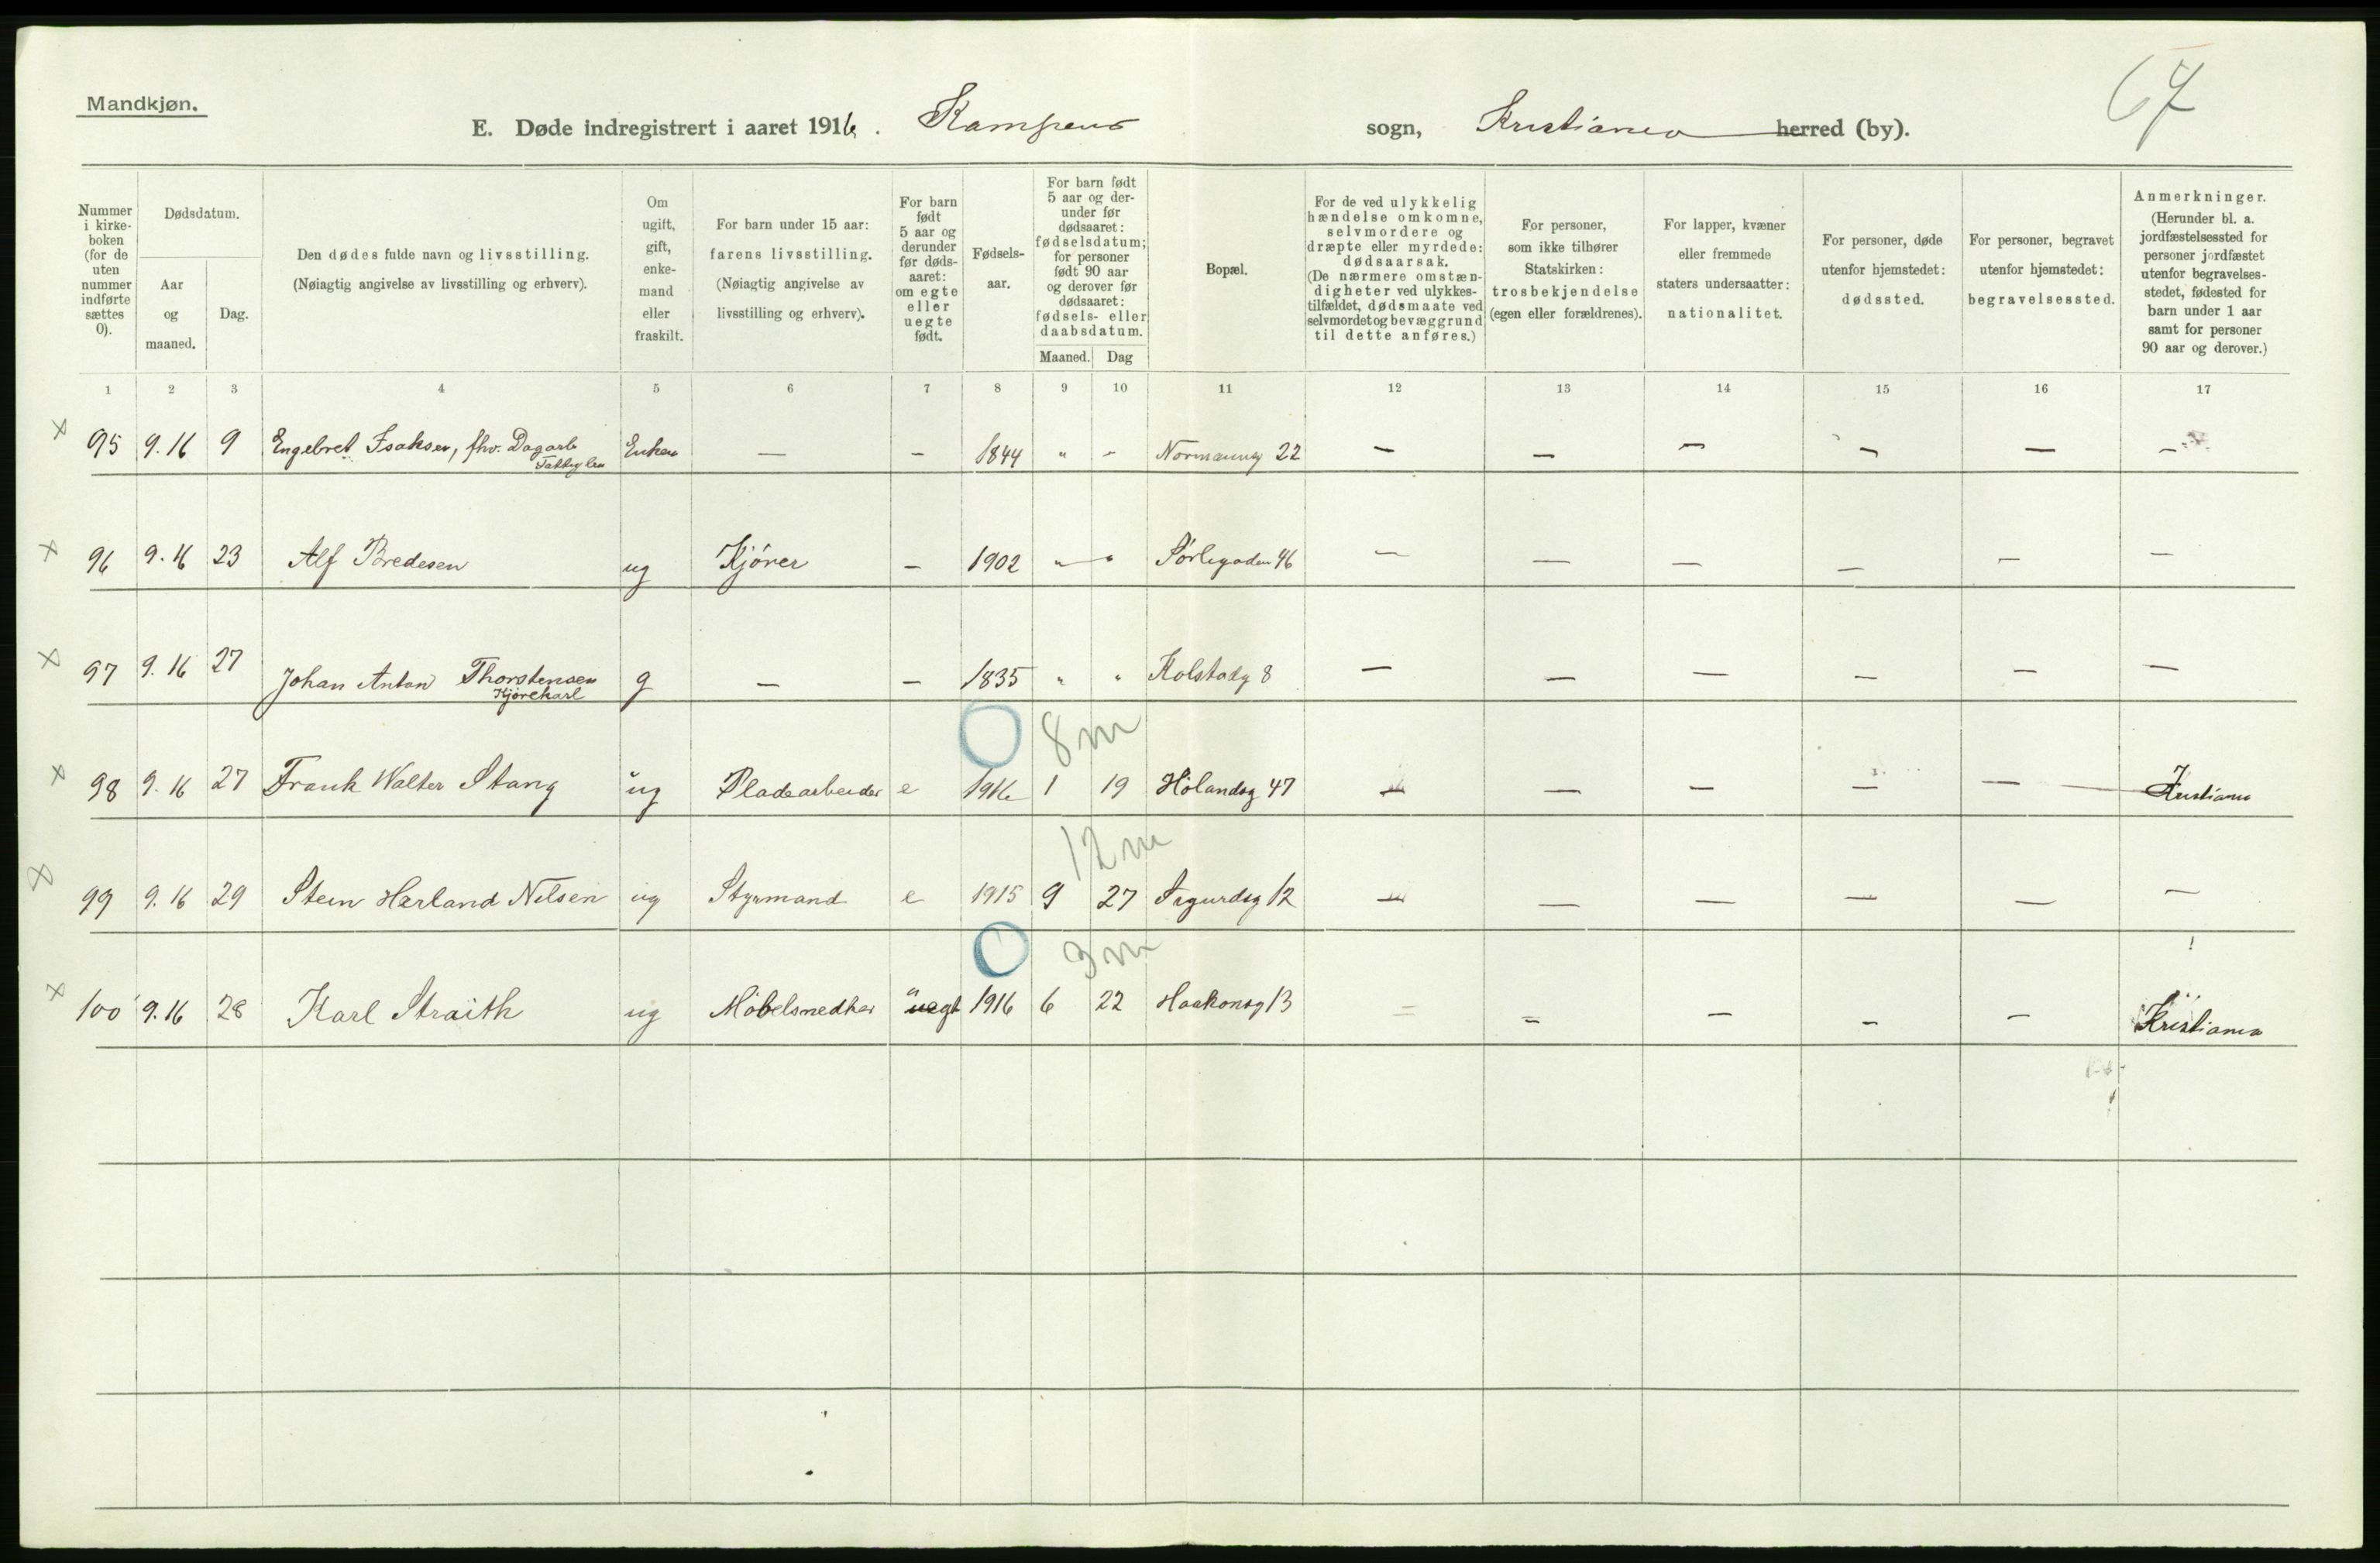 67
Mandkjøn.
E. Døde indregistrert i aaret 1916. Kampens sogn, Kristiania herred (by).
Nummer i kirke-boken (for de uten nummer indførte sættes 0).
Dødsdatum.
Aar og maaned.
Dag.
Den dødes fulde navn og livsstilling.
(Nøiagtig angivelse av livsstilling og erhverv).
Om ugift, gift, enke-mand eller fraskilt.
For barn under 15 aar: farens livsstilling.
(Nøiagtig angivelse av livsstilling og erhverv).
For barn født 5 aar og derunder før døds-aaret: om egte eller uegte født.
Fødsels-aar.
For barn født 5 aar og der-under før dødsaaret: fødselsdatum; for personer født 90 aar og derover før dødsaaret: fødsels- eller daabsdatum.
Maaned. Dag
Bopæl.
For de ved ulykkelig hændelse omkomne, selvmordere og dræpte eller myrdede: dødsaarsak. (De nærmere omstæn-digheter ved ulykkes-tilfældet, dødsmaate ved selvmordet og bevæggrund til dette anføres.)
For personer, som ikke tilhører Statskirken: trosbekjendelse (egen eller forældrenes).
For lapper, kvæner eller fremmede staters undersaatter: nationalitet.
For personer, døde utenfor hjemstedet: dødssted.
For personer, begravet utenfor hjemstedet: begravelsessted.
Anmerkninger.
(Herunder bl. a. jordfæstelsessted for personer jordfæstet utenfor begravelses-stedet, fødested for barn under 1 aar samt for personer 90 aar og derover.)
1 2 3 4 5 6 7 8 9 10 11 12 13 14 15 16 17
x 95 9.16 9 Engebret Isaksen, fhv. Dagarb Enkem — — 1844 " - Normanng 22 — — — — — —
x 96 9.16 23 Alf Bredesen ug Kjører — 1902 " " Sørligaden 46 — — — — — —
x 97 9.16 27 Johan Anton Thorstensen g — — 1835 " " Kolstadg 8 — — — — — —
Kjørekarl
8 m
x 98 9.16 27 Frank Walter Stang ug Pladearbeider e 1916 1 19 Hölandsg 47 — — — — — Kristiania
12 m
x 99 9.16 29 Stein Harland Nilsen ug Styrmand e 1915 9 27 Sigurdsg 12 — — — — — —
3 m
x 100 9.16 28 Karl Straith ug Möbelsnedker uegt 1916 6 22 Haakonsg 13 = — — — — Kristiania